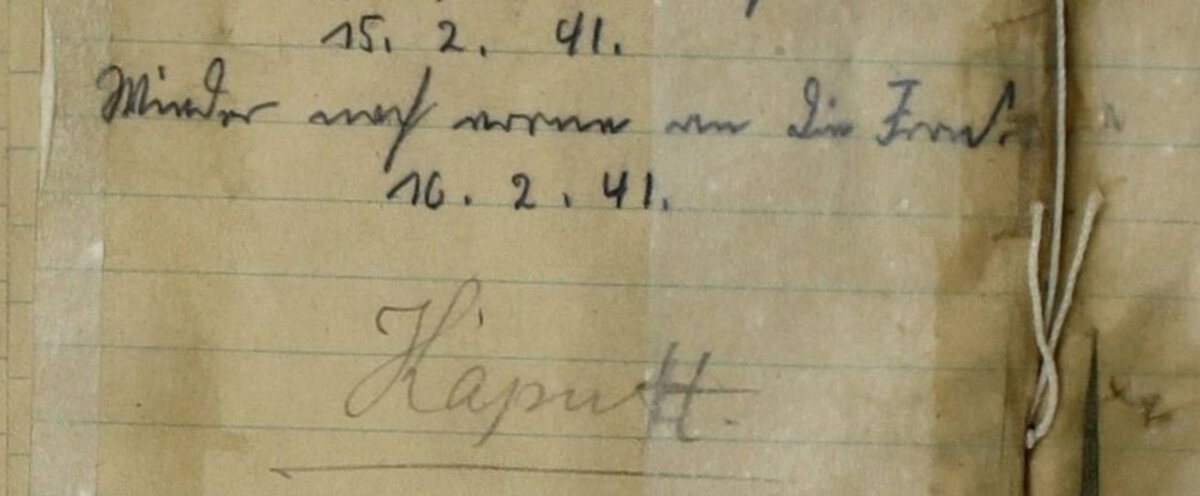 15. 2. 41.
Wieder nach vorne an die Front.
16. 2. 41.
Kaputt.